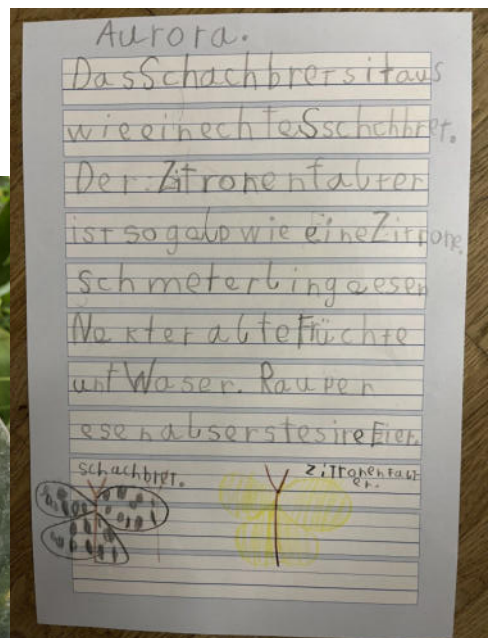 Aurora.
DasSchachbrersitaus
wieeinechtesSschchbret.
Der Zitronenfalter
ist so galb wie eineZitrone.
schmeterlingeesen
Nekter alteFrüchte
untWaser. Raupen
esenalserstesireEier.
schachbret.
zitronenfalt
er.